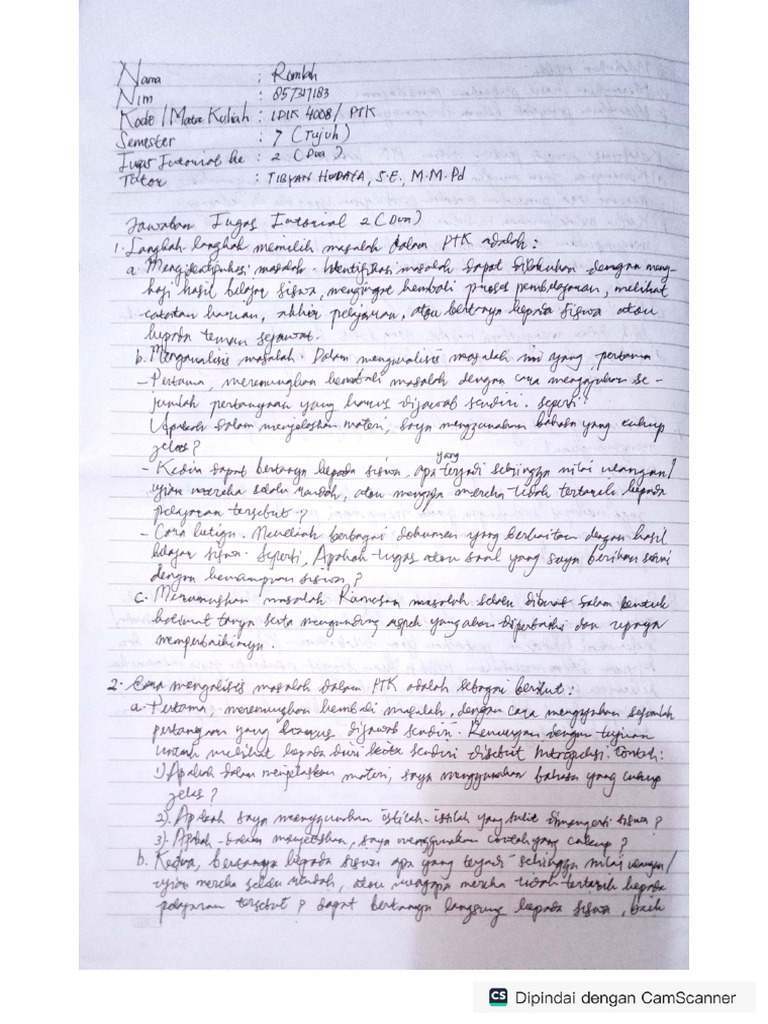 Nama : Romlah
Nim : 857347183
Kode / Mata Kuliah : IDIK 4008 / PTK
Semester : 7 (Tujuh)
Tugas Tutorial ke : 2 (Dua)
Tutor : TIBYAN HUDAYA, S.E., M.M.Pd
Jawaban Tugas Tutorial 2 (Dua)
1. Langkah-langkah memilih masalah dalam PTK adalah :
a. Mengidentifikasi masalah. Identifikasi masalah dapat dilakukan dengan meng-
kaji hasil belajar siswa, mengingat kembali proses pembelajaran, melihat
catatan harian, akhir pelajaran, atau bertanya kepada siswa atau
kepada teman sejawat.
b. Menganalisis masalah. Dalam menganalisis masalah ini yang pertama
- Pertama, merenungkan kembali masalah dengan cara mengajukan se-
jumlah pertanyaan yang harus dijawab sendiri. Seperti :
1) Apakah dalam menjelaskan materi, saya menggunakan bahasa yang cukup
jelas?
- Kedua dapat bertanya kepada siswa, apa yang terjadi sehingga nilai ulangan/
ujian mereka selalu rendah, atau mengapa mereka tidak tertarik kepada
pelajaran tersebut ?
- Cara ketiga. Menelaah berbagai dokumen yang berkaitan dengan hasil
belajar siswa. Seperti, Apakah tugas atau soal yang saya berikan sesuai
dengan kemampuan siswa ?
c. Merumuskan masalah Rumusan masalah selalu dibuat dalam bentuk
kalimat tanya serta mengandung aspek yang akan diperbaiki dan upaya
memperbaikinya.
2. Cara mengalisis masalah dalam PTK adalah sebagai berikut :
a. Pertama, merenungkan kembali masalah, dengan cara mengajukan sejumlah
pertanyaan yang harus dijawab sendiri. Renungan dengan tujuan
untuk melihat kepada diri kita sendiri disebut Introspeksi. Contoh:
1) Apakah dalam menjelaskan materi, saya menggunakan bahasa yang cukup
jelas ?
2). Apakah saya menggunakan istilah-istilah yang sulit dimengerti siswa ?
3). Apakah dalam menjelaskan, saya menggunakan contoh yang cukup ?
b. Kedua, bertanya kepada siswa apa yang terjadi sehingga nilai ulangan/
ujian mereka selalu rendah, atau mengapa mereka tidak tertarik kepada
pelajaran tersebut ? dapat bertanya langsung kepada siswa, baik
CS Dipindai dengan CamScanner